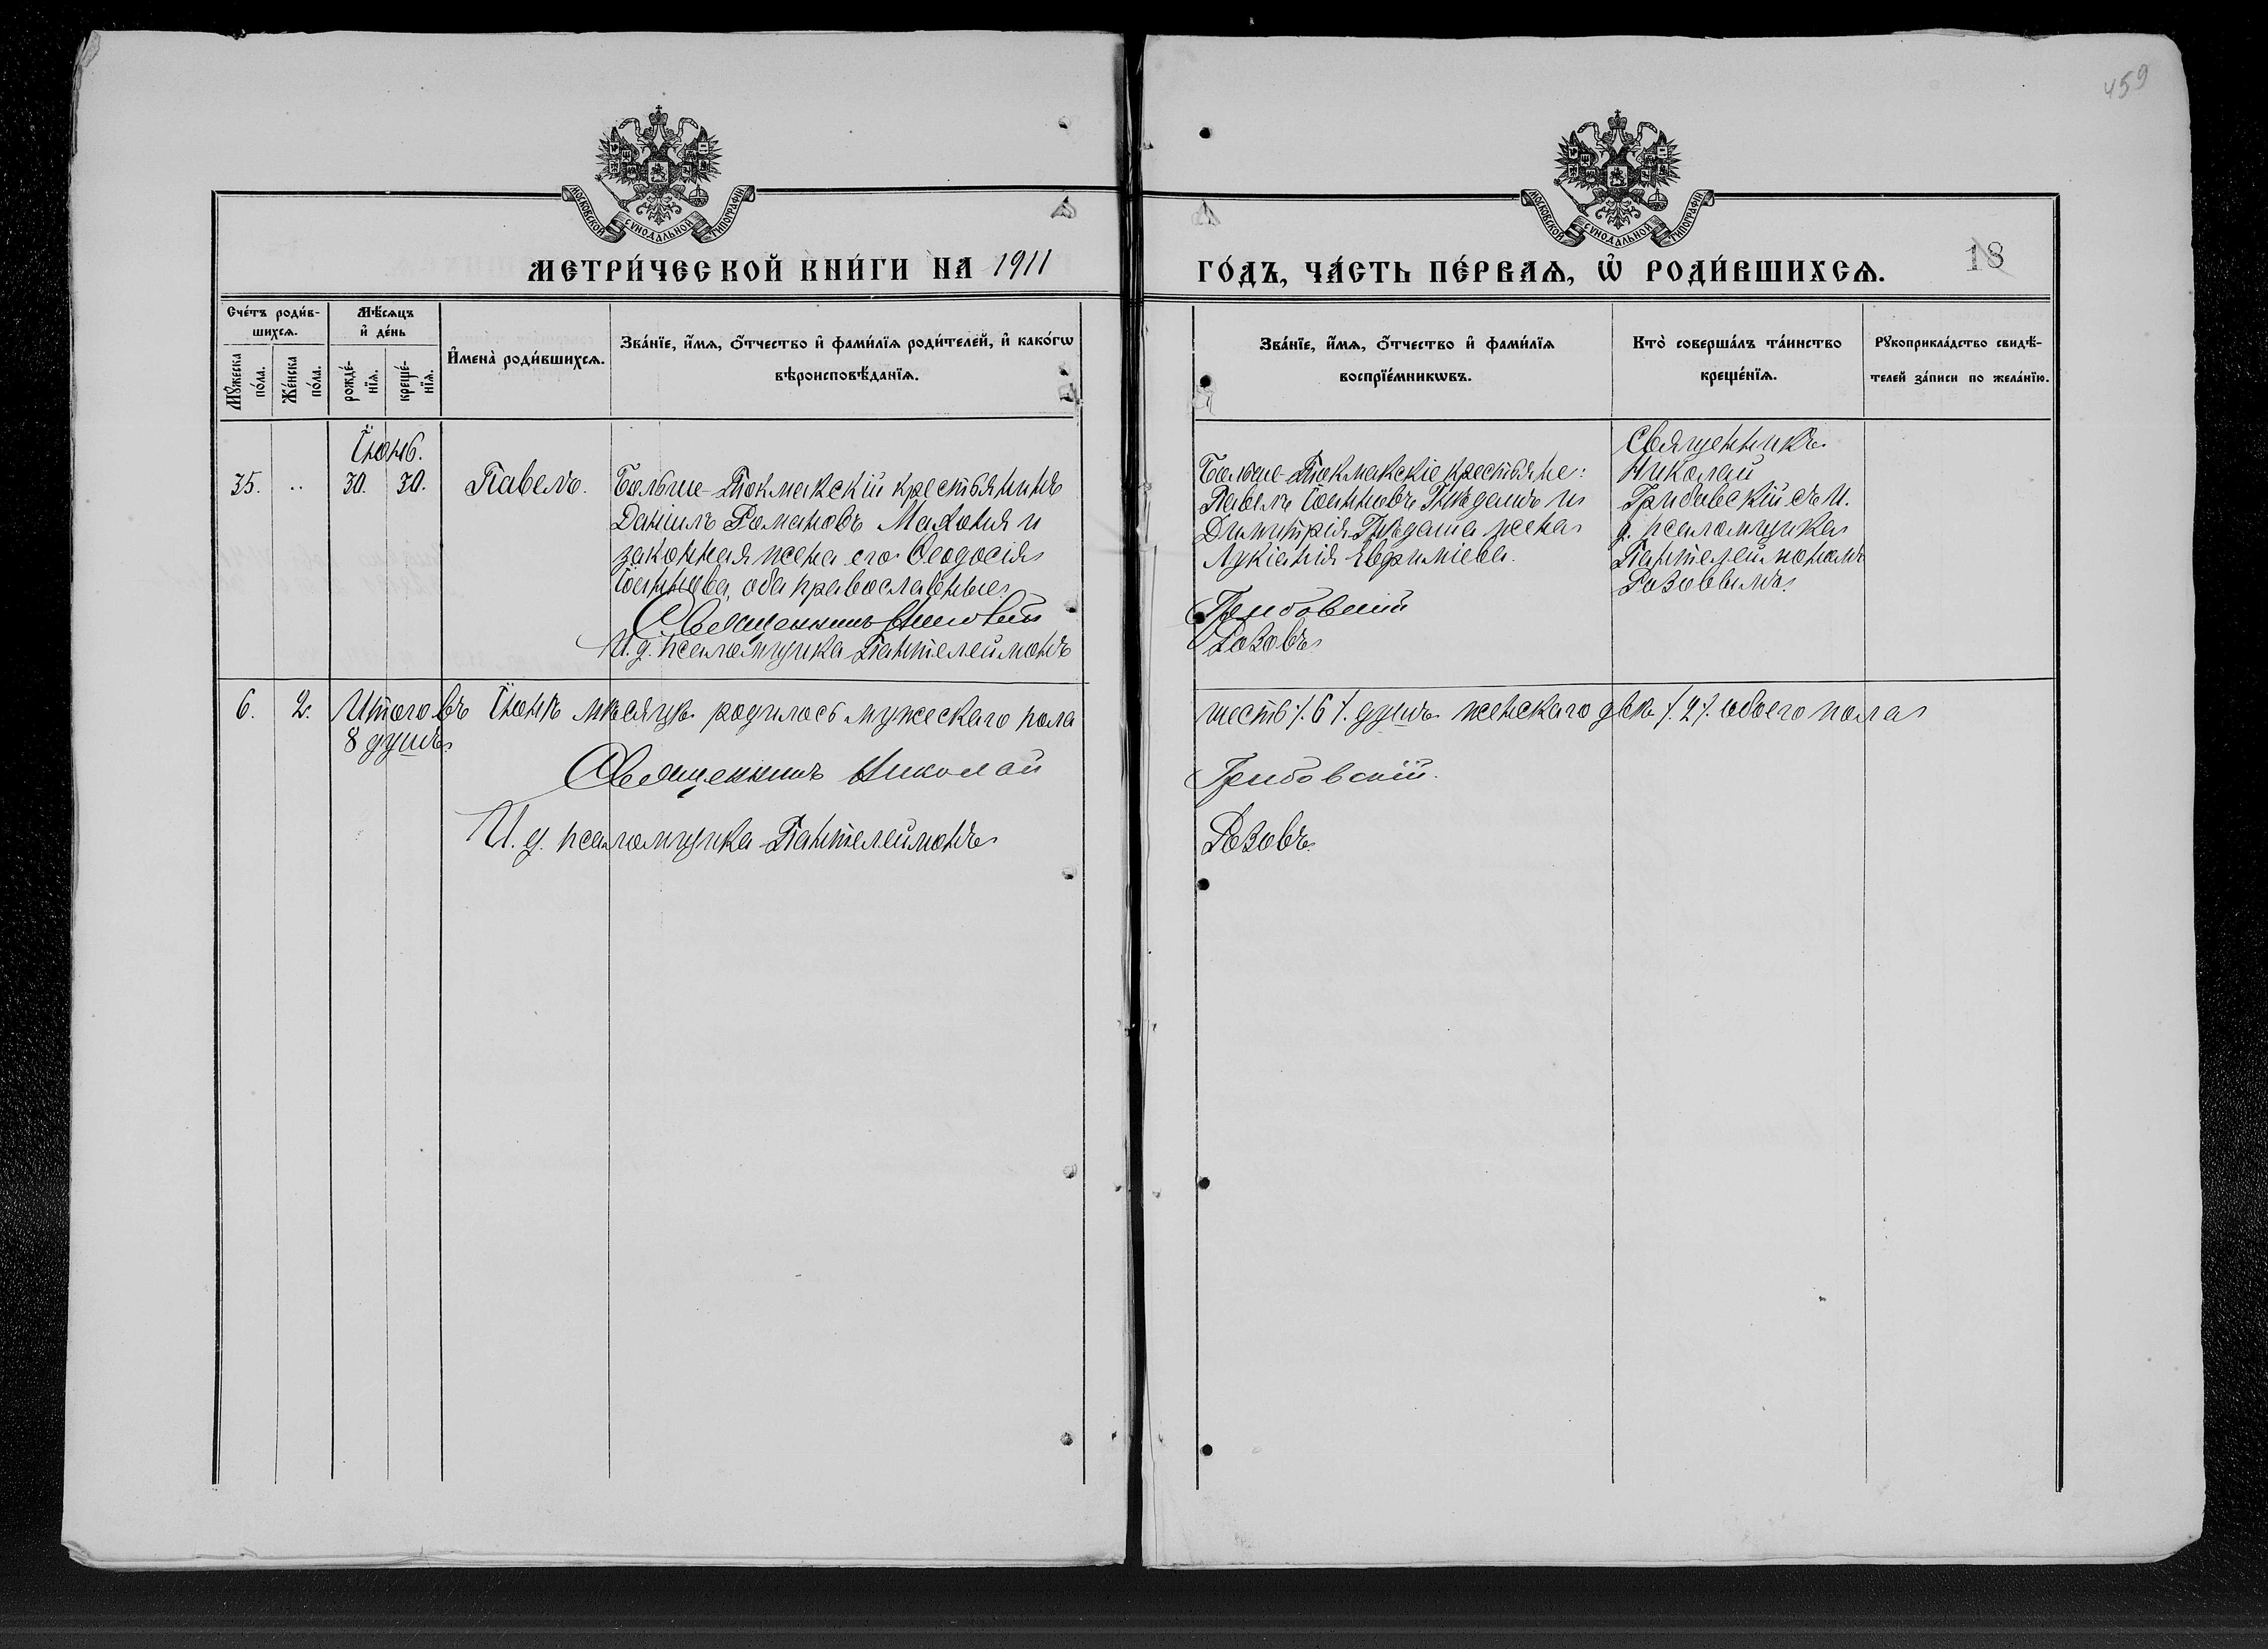 459
МОСКОВСКОЙ СѴНОДАЛЬНОЙ ТИПОГРАФІИ
МОСКОВСКОЙ СѴНОДАЛЬНОЙ ТИПОГРАФІИ
18
МЕТРИ́ЧЕСКОЙ КНИ́ГИ НА 1911
ГО́ДЪ, ЧА́СТЬ ПЕ́РВАѦ, Ѡ҆ РОДИ́ВШИХСѦ.
Сче́тъ роди́в-
шихсѧ.
Мꙋ́жеска
по́ла.
Же́нска
по́ла.
Мѣ́сѧцъ
и҆ де́нь
рожде́-
нїѧ.
креще́-
нїѧ.
И҆мена̀ роди́вшихсѧ.
Зва́нїе, и҆́мѧ, ѻ҆́тчество и҆ фами́лїѧ роди́телей, и҆ како́гѡ
вѣроисповѣ́данїѧ.
Зва́нїе, и҆́мѧ, ѻ҆́тчество и҆ фами́лїѧ
воспрїе́мникѡвъ.
Кто̀ соверша́лъ та́инство
креще́нїѧ.
Рꙋкоприкла́дство свидѣ́-
телей за́писи по жела́нїю.
Іюнь.
35.
..
30.
30.
Павелъ.
Больше-Токмакскій крестьянинъ
Даніилъ Романовъ Махоня и
законная жена его Ѳеодосія
Іоаннова, оба православные.
Священникъ Николай
И. д. псаломщика Пантелеймонъ
Больше-Токмакскіе крестьяне:
Павелъ Іоанновъ Гнѣдашъ и
Димитрія Гнѣдаша жена
Лукіанія Евфиміева.
Грибовскій
Розовъ
Священникъ
Николай
Грибовскій съ И.
д. псаломщика
Пантелеймономъ
Розовымъ.
6.
2.
Итого въ Іюнѣ мѣсяцѣ родилось мужескаго пола
шесть /. 6 /. душъ женскаго двѣ /. 2 /. обоего пола
8 душъ
Священникъ Николай
Грибовскій.
И. д. псаломщика Пантелеймонъ
Розовъ.